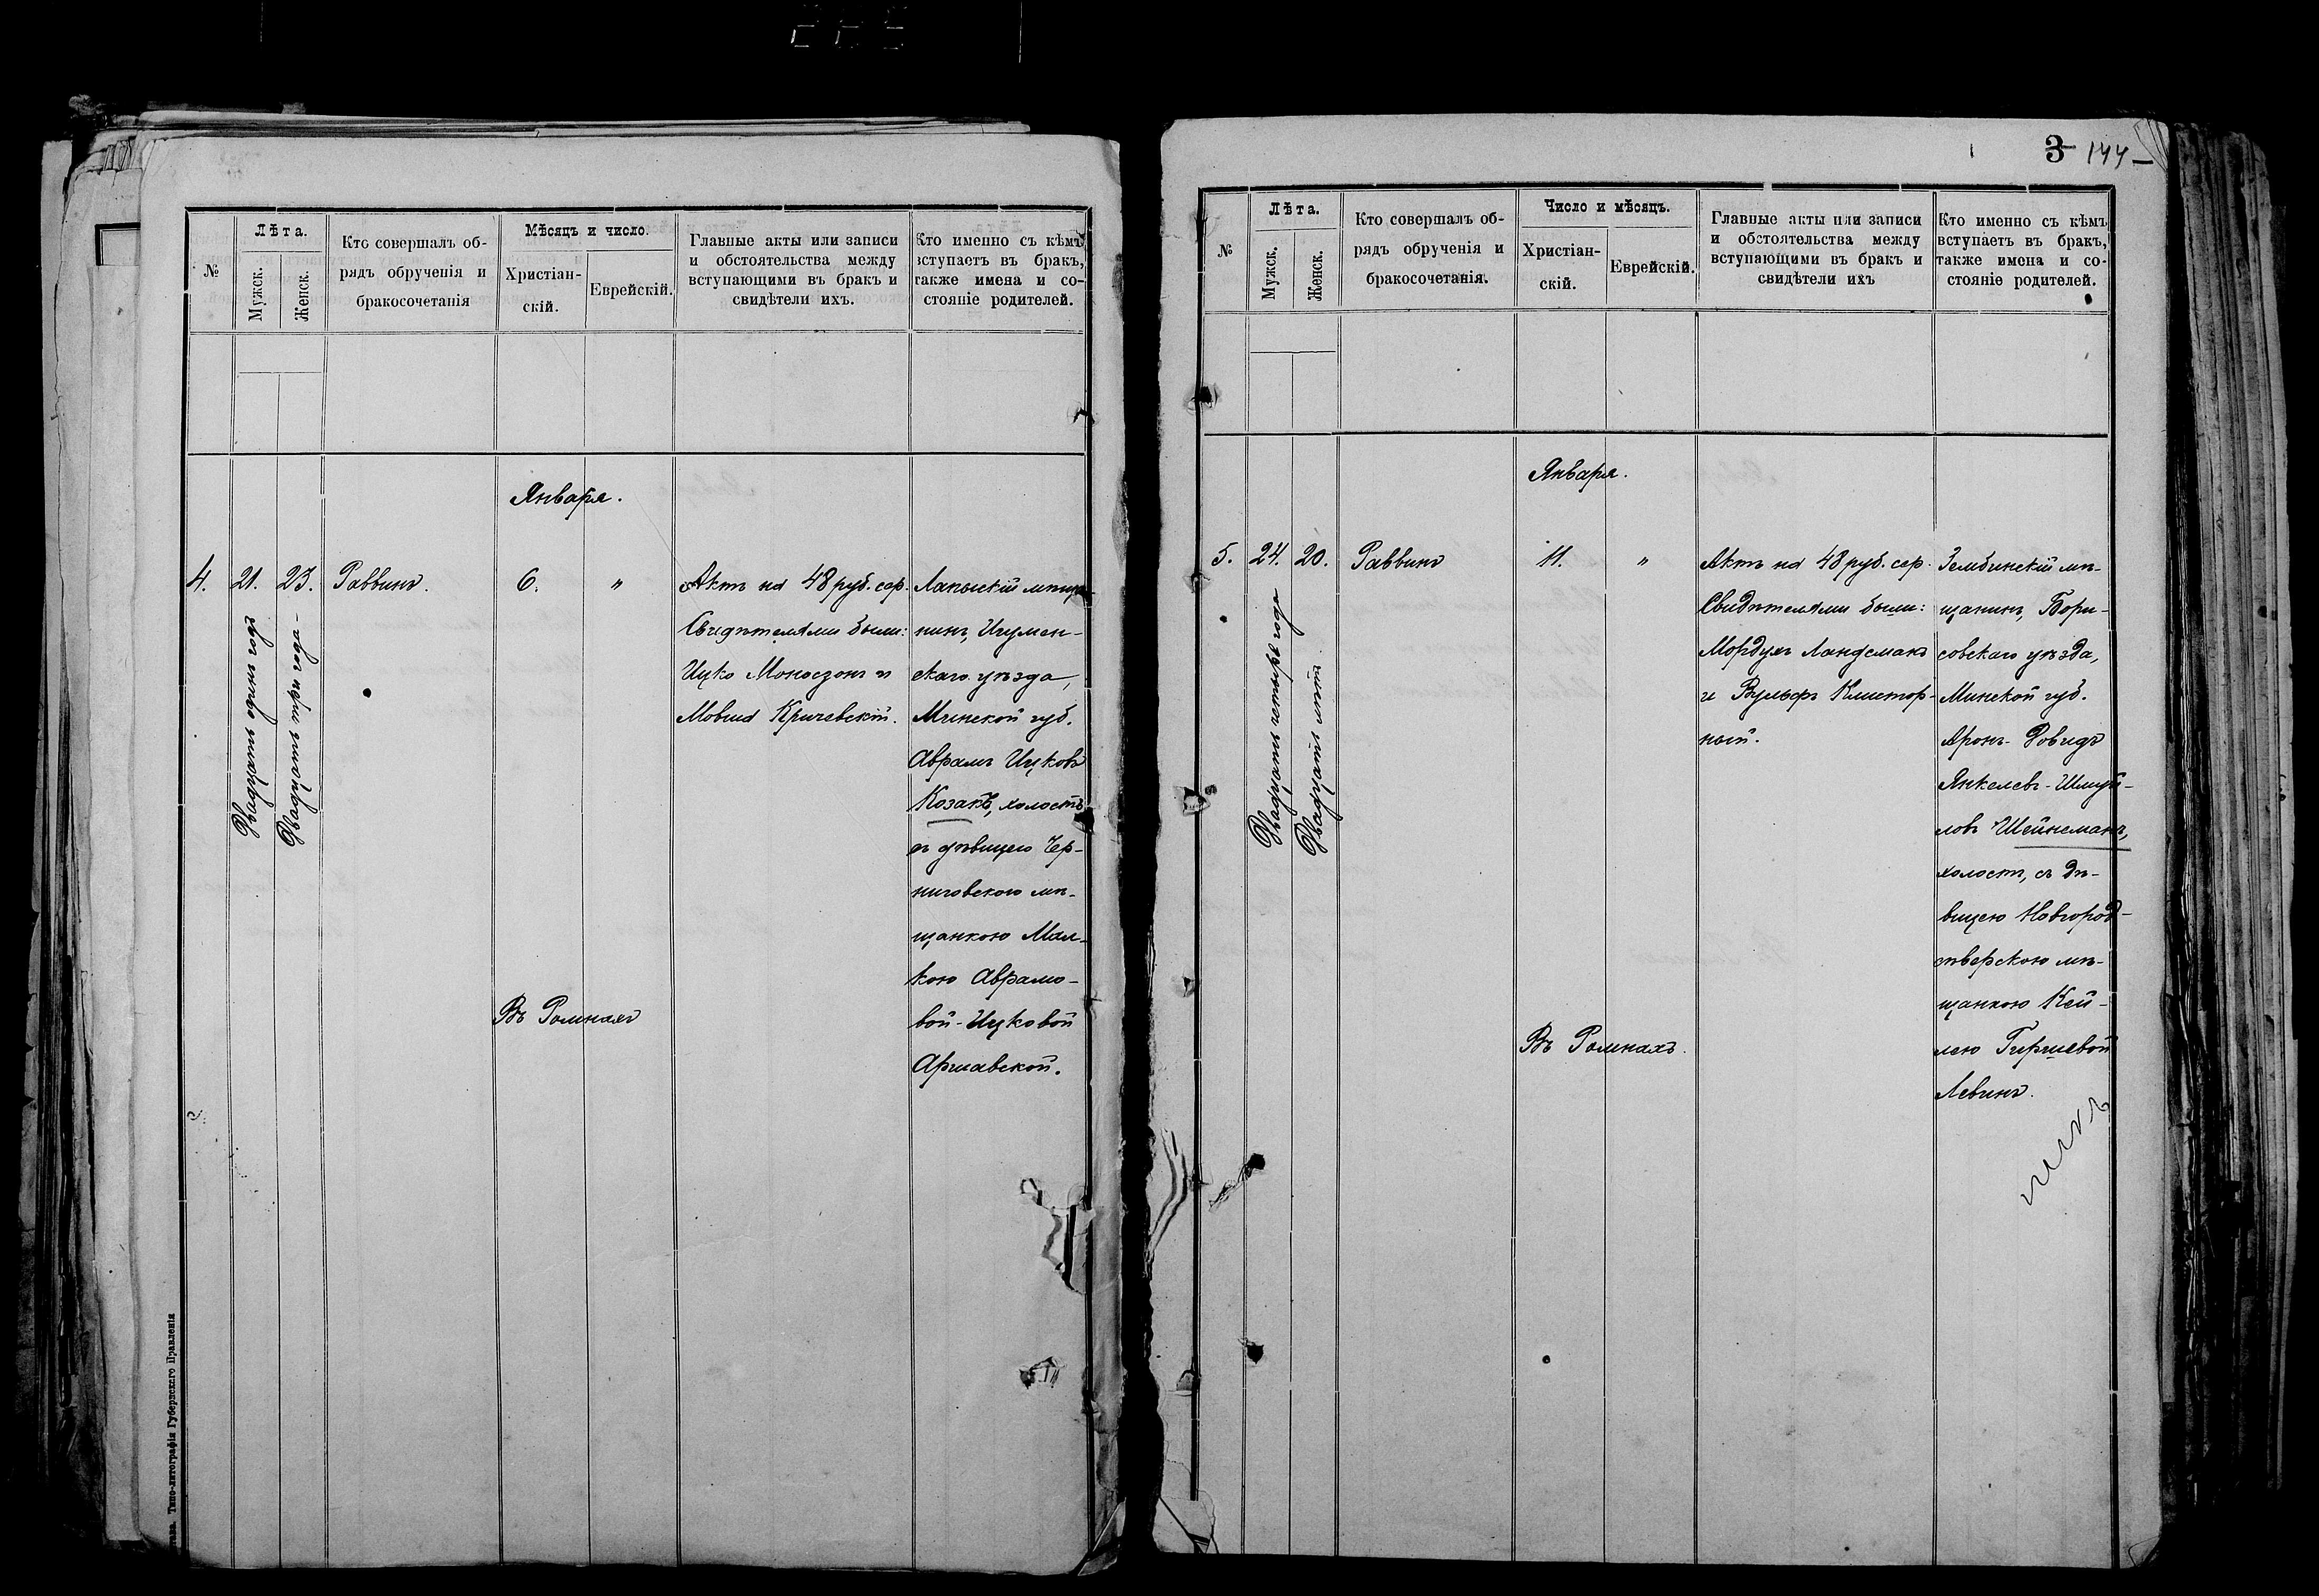 №
Лѣта.
Мужск.
Женск.
Кто совершалъ об-
рядъ обрученія и
бракосочетанія
Мѣсяцъ и число.
Христіан-
скій.
Еврейскій.
Главные акты или записи
и обстоятельства между
вступающими въ бракъ и
свидѣтели ихъ.
Кто именно съ кѣмъ
вступаетъ въ бракъ,
также имена и со-
стояніе родителей.
Января.
4.
21.
23.
Двадцать одинъ годъ
Двадцать три года
Раввинъ.
6.
"
Въ Ромнахъ
Актъ на 48 руб. сер.
Свидѣтелями были:
Ицко Моносзонъ и
Мовша Кричевскій.
мѣща-
нинъ, Игумен-
скаго уѣзда,
Минской губ.
Аврамъ Ицковъ
Козакъ, холостъ
съ дѣвицею Чер-
ниговскою мѣ-
щанкою Мал-
кою Аврамо-
вой-Ицковой
Аршавской.
Типо-литографія Губернскаго Правленія
3 144
№
Лѣта.
Мужск.
Женск.
Кто совершалъ об-
рядъ обрученія и
бракосочетанія.
Число и мѣсяцъ.
Христіан-
скій.
Еврейскій.
Главные акты или записи
и обстоятельства между
вступающими въ бракъ и
свидѣтели ихъ
Кто именно съ кѣмъ
вступаетъ въ бракъ,
также имена и со-
стояніе родителей.
Января.
5.
24.
20.
Двадцать четыре года
Двадцать лѣтъ
Раввинъ
11.
"
Въ Ромнахъ.
Актъ на 48 руб. сер.
Свидѣтелями были:
Мордухъ Ландсманъ
и Вульфъ Клитор-
ный.
Зембинскій мѣ-
щанинъ, Бори-
совскаго уѣзда,
Минской губ.
Аронъ-Довидъ
Янкелевъ-Шмуй-
ловъ Шейнеманъ,
холостъ, съ дѣ-
вицею Новгород-
сѣверскою мѣ-
щанкою Кей-
лею Гиршевой
Левинъ.